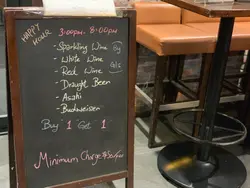 HAPPY HOUR
3:00pm - 8:00pm
- Sparkling Wine
- White Wine
- Red Wine
- Draught Beer
- Asahi
- Budweiser
Buy 1 Get 1
Minimum Charge